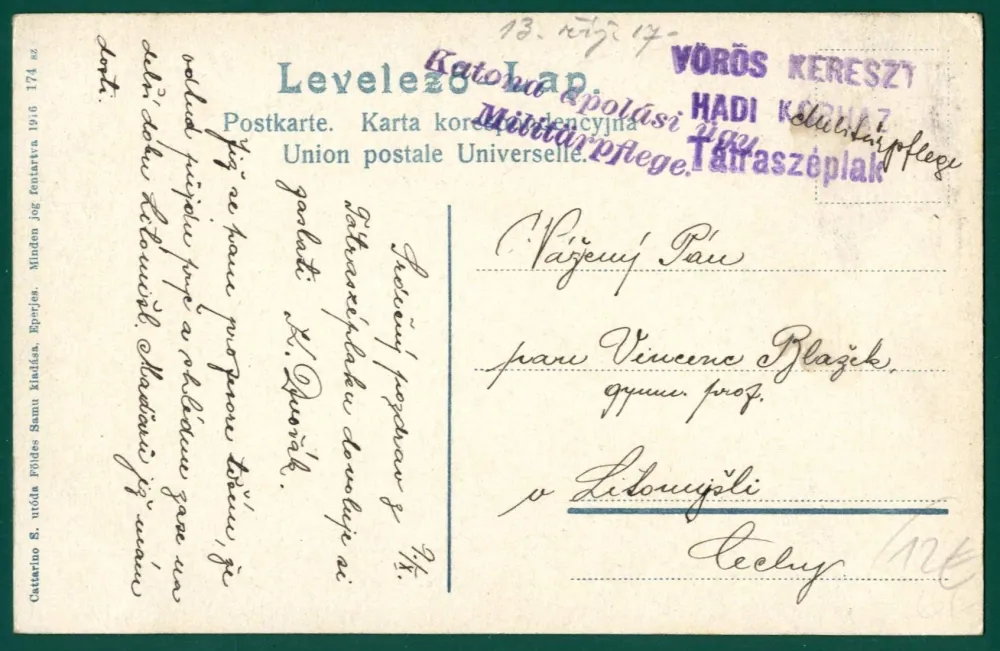 13. říj. 17-
Levelező-Lap.
Postkarte. Karta korespondencyjna
Union postale Universelle.
Katona ápolási ügy
Militärpflege.
VÖRÖS KERESZT
HADI KÓRHÁZ
Tátraszéplak
Militärpflege
Vážený Pán
pan Vincenc Blažek,
gymn. prof.
v Litomyšli
Čechy
9./X.
Srdečný pozdrav z
Tátraszéplaku dovoluje si
zaslati
Dvořák.
Již se pane profesore těším, že
odtud půjdu pryč a shlédnu zase na
delší dobu Litomyšl. Maďarů již mám
dosti.
Cattarino S. utóda Földes Samu kiadása, Eperjes. Minden jog fentartva 1916 174 sz
12€